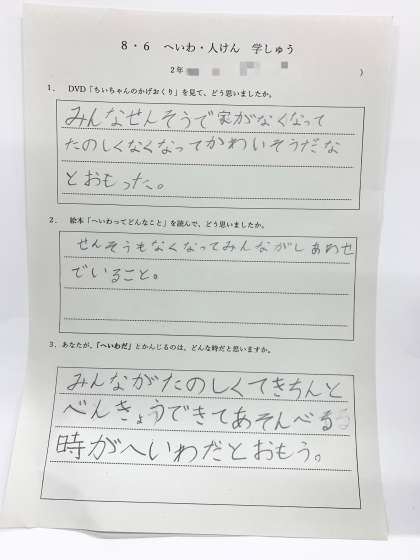 8・6 へいわ・人けん 学しゅう
2年
)
1. DVD「ちいちゃんのかげおくり」を見て、どう思いましたか。
みんなせんそうで家がなくなって
たのしくなくなってかわいそうだな
とおもった。
2. 絵本「へいわってどんなこと」を読んで、どう思いましたか。
せんそうもなくなってみんながしあわせ
でいること。
3. あなたが、「へいわだ」とかんじるのは、どんな時だと思いますか。
みんながたのしくてきちんと
べんきょうできてあそんべる
時がへいわだとおもう。